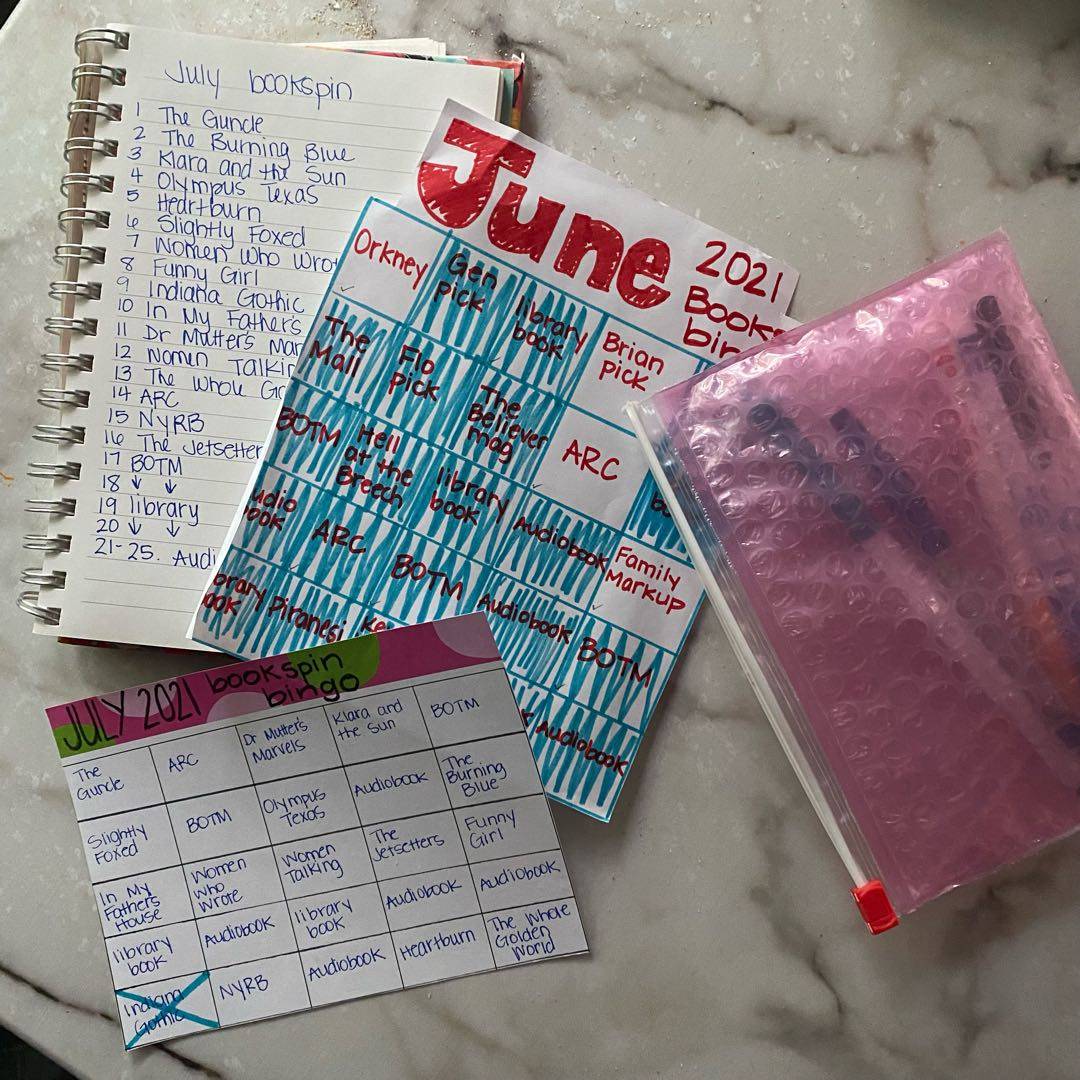 July bookspin
1 The Guncle
2 The Burning Blue
3 Klara and the Sun
4 Olympus Texas
5 Heartburn
6 Slightly Foxed
7 Women Who Wro
8 Funny Girl
9 Indiana Gothic
10 In My Father's
11 Dr Mutter's Mar
12 Women Talkin
13 The Whole Go
14 ARC
15 NYRB
16 The Jetsetter
17 BOTM
18 ↓ ↓
19 library
20 ↓ ↓
21-25. Audi
June
2021
Books
bin
Orkney
Gen
pick
library
book
Brian
pick
The
Mail
Flo
pick
The
Believer
mag
ARC
BOTM
Hell
at the
Breech
library
book
Audiobook
Family
Markup
udio
book
ARC
BOTM
Audiobook
BOTM
brary
ook
Piranesi
Audiobook
JULY 2021 bookspin
bingo
The
Guncle
ARC
Dr Mutter's
Marvels
Klara and
the Sun
BOTM
Slightly
Foxed
BOTM
Olympus
Texas
Audiobook
The
Burning
Blue
In My
Father's
House
Women
Who
Wrote
Women
Talking
The
Jetsetters
Funny
Girl
library
book
Audiobook
library
book
Audiobook
Audiobook
Indiana
Gothic
NYRB
Audiobook
Heartburn
The Whole
Golden
World